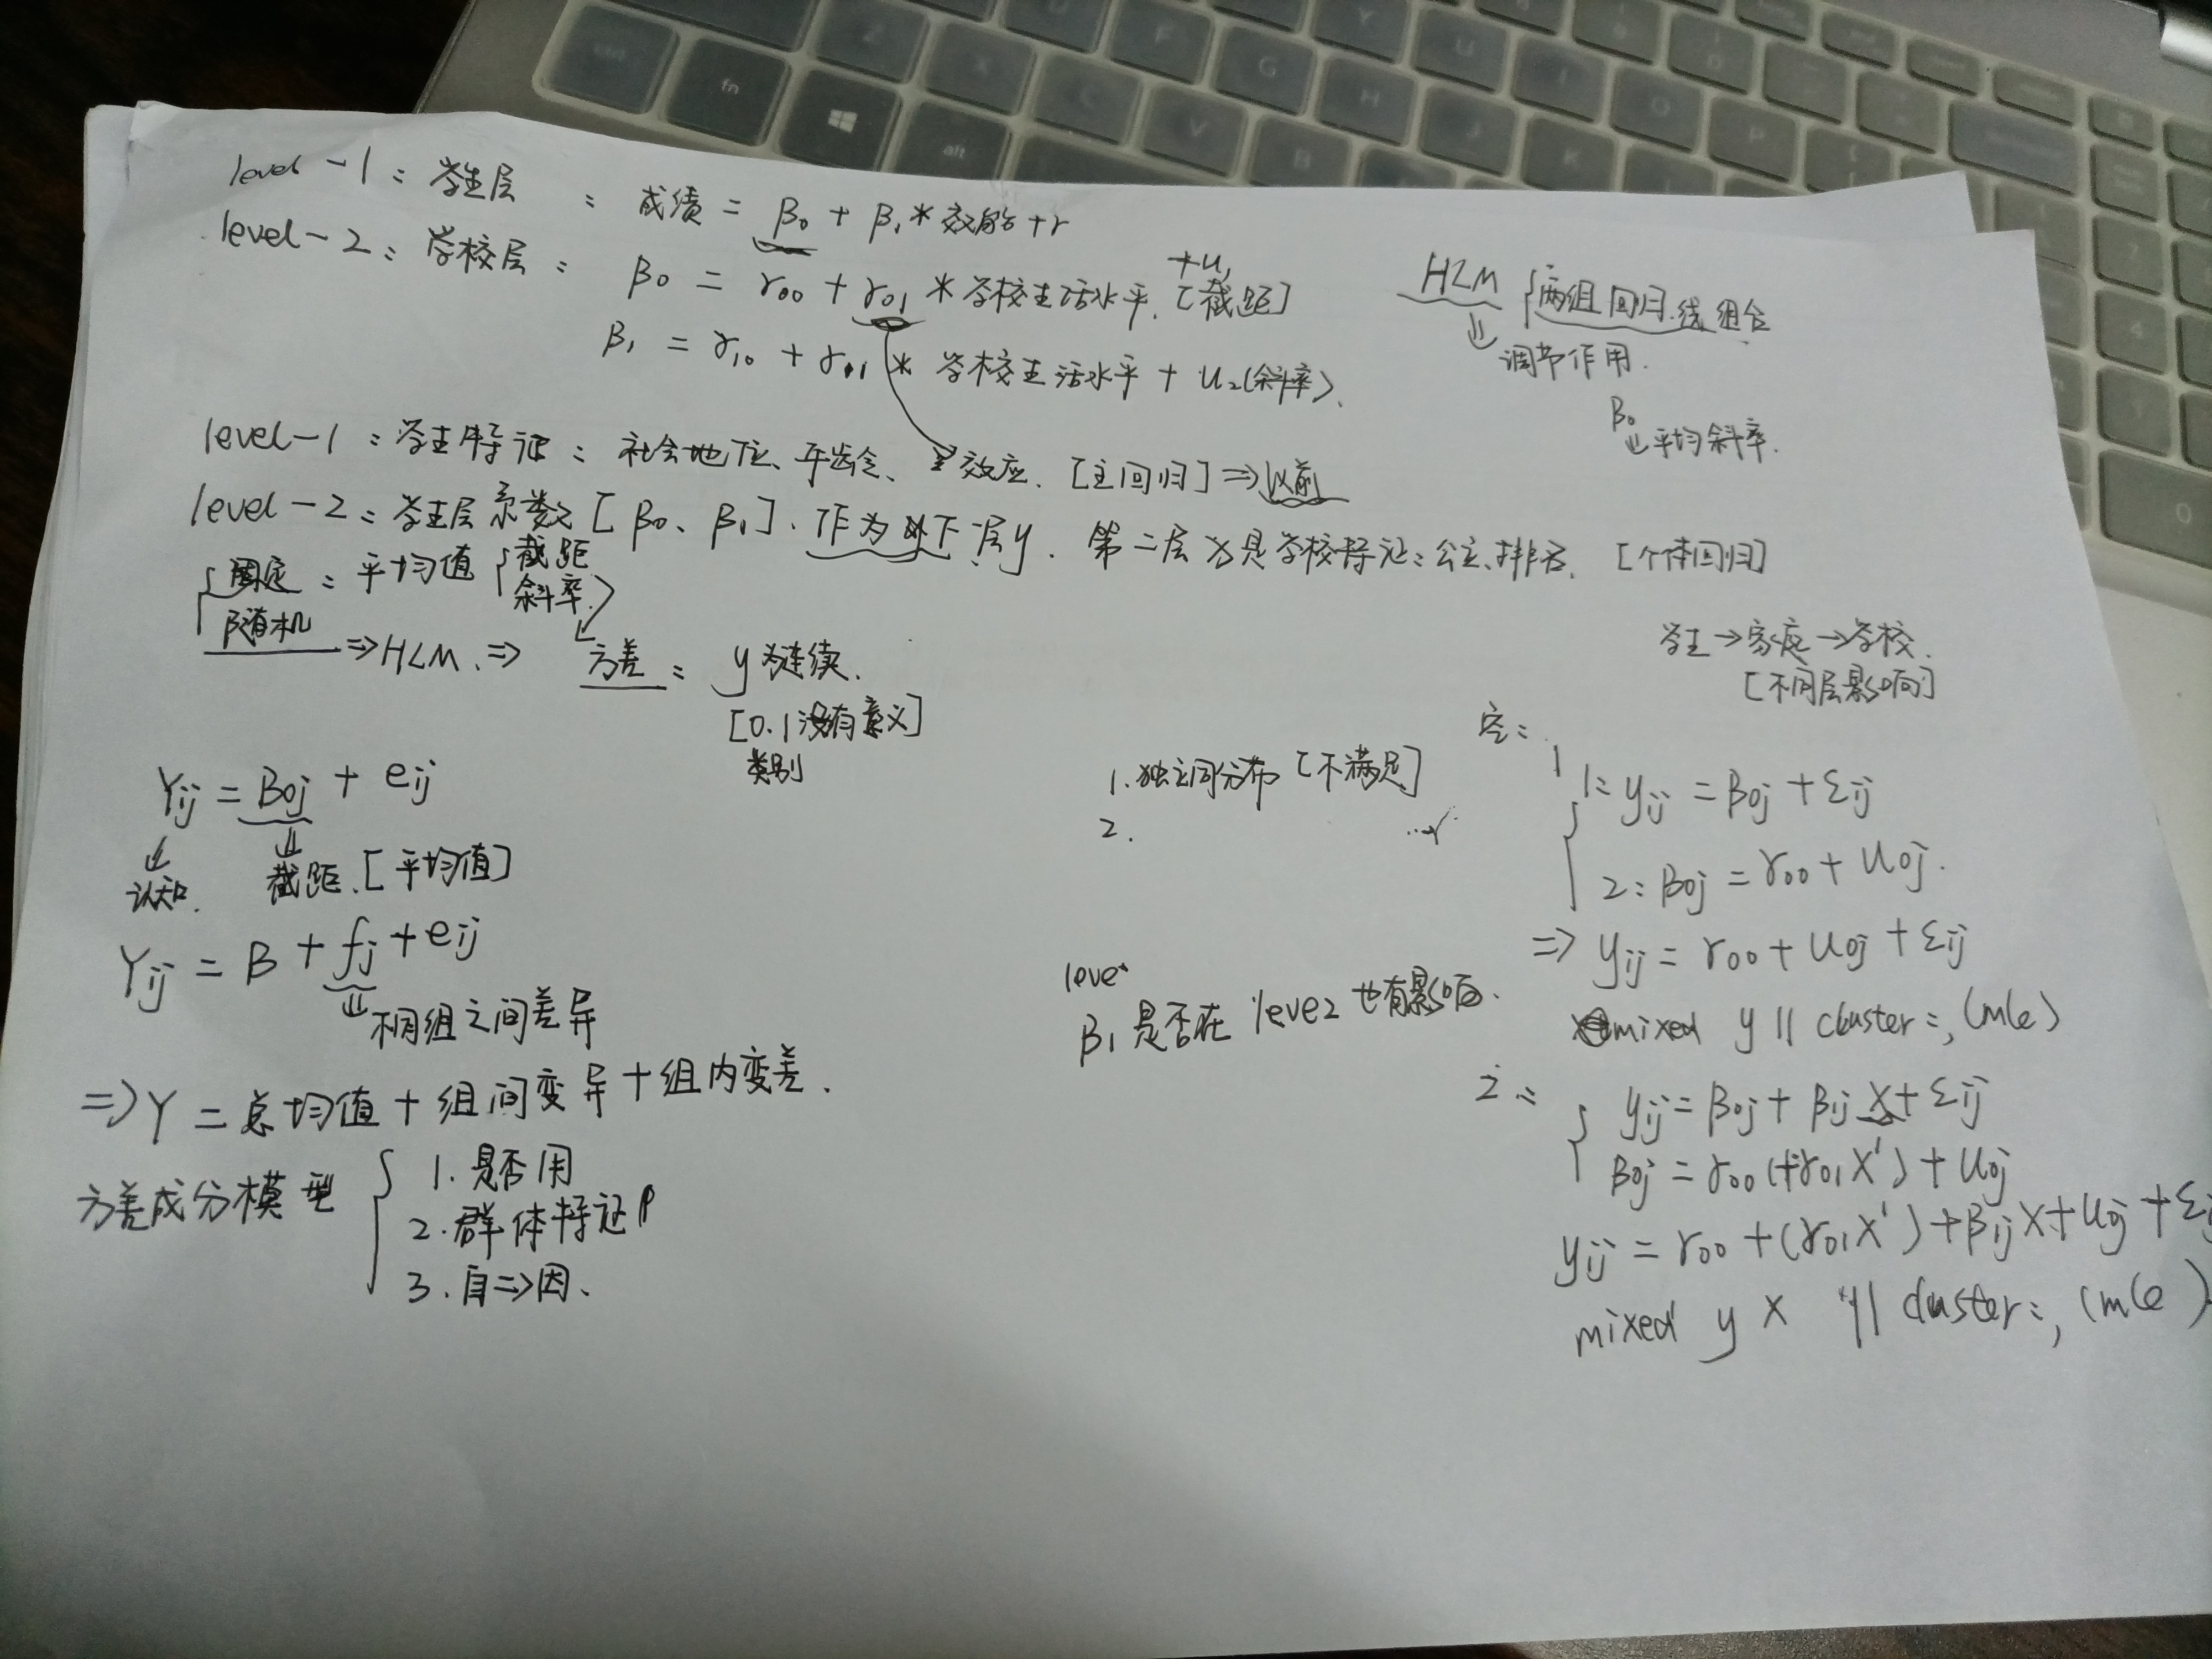 level-1：学生层 ： 成绩 = β0 + β1*效能+r
level-2：学校层： β0 = γ00 + γ01 * 学校生活水平. +u1 [截距]
β1 = γ10 + γ01 * 学校生活水平 + u2(斜率).
HLM {两组回归线组合
⇓ 调节作用.
β0
⇓平均斜率.
level-1：学生特征：社会地位、年龄、效应. [主回归]⇒以前
level-2：学生层系数[β0、β1]. 作为下层y. 第二层为是学校特征：公立、排名. [个体回归]
固定：平均值{截距 斜率.
随机 ⇒HLM.⇒ 方差： y为连续.
[0.1没有意义]
类别
学生→家庭→学校.
[不同层影响]
Yij = Boj + eij
认知. 截距.[平均值]
Yij = B + fj + eij
⇓不同组之间差异
⇒Y = 总均值 + 组间变异 + 组内变差.
方差成分模型 { 1.是否用
2.群体特征β
3.自⇒因.
1.独立同分布[不满足]
2.
level
β1 是否在 level2 也有影响.
空：
1：yij = βoj + εij
2：βoj = γ00 + uoj.
⇒ yij = γ00 + uoj + εij
mixed y || cluster:, (mle)
2：
yij = βoj + βij X + εij
βoj = γ00(+γ01X') + uoj
yij = γ00 + (γ01X') + βijX + uoj + εij
mixed y X || cluster:, (mle)